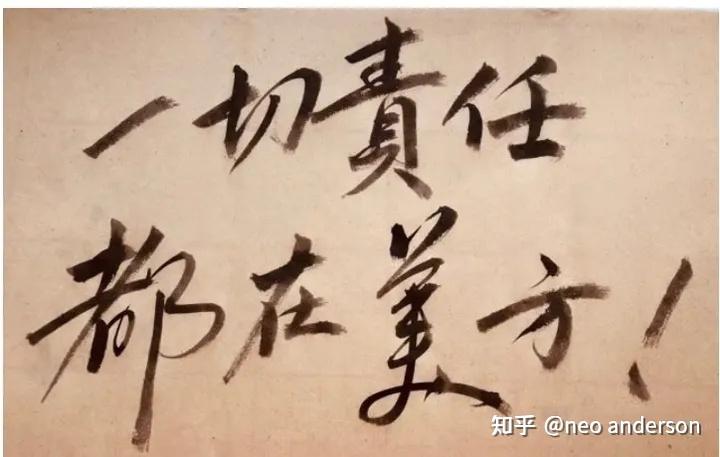 一切責任
都在美方！
知乎 @neo anderson